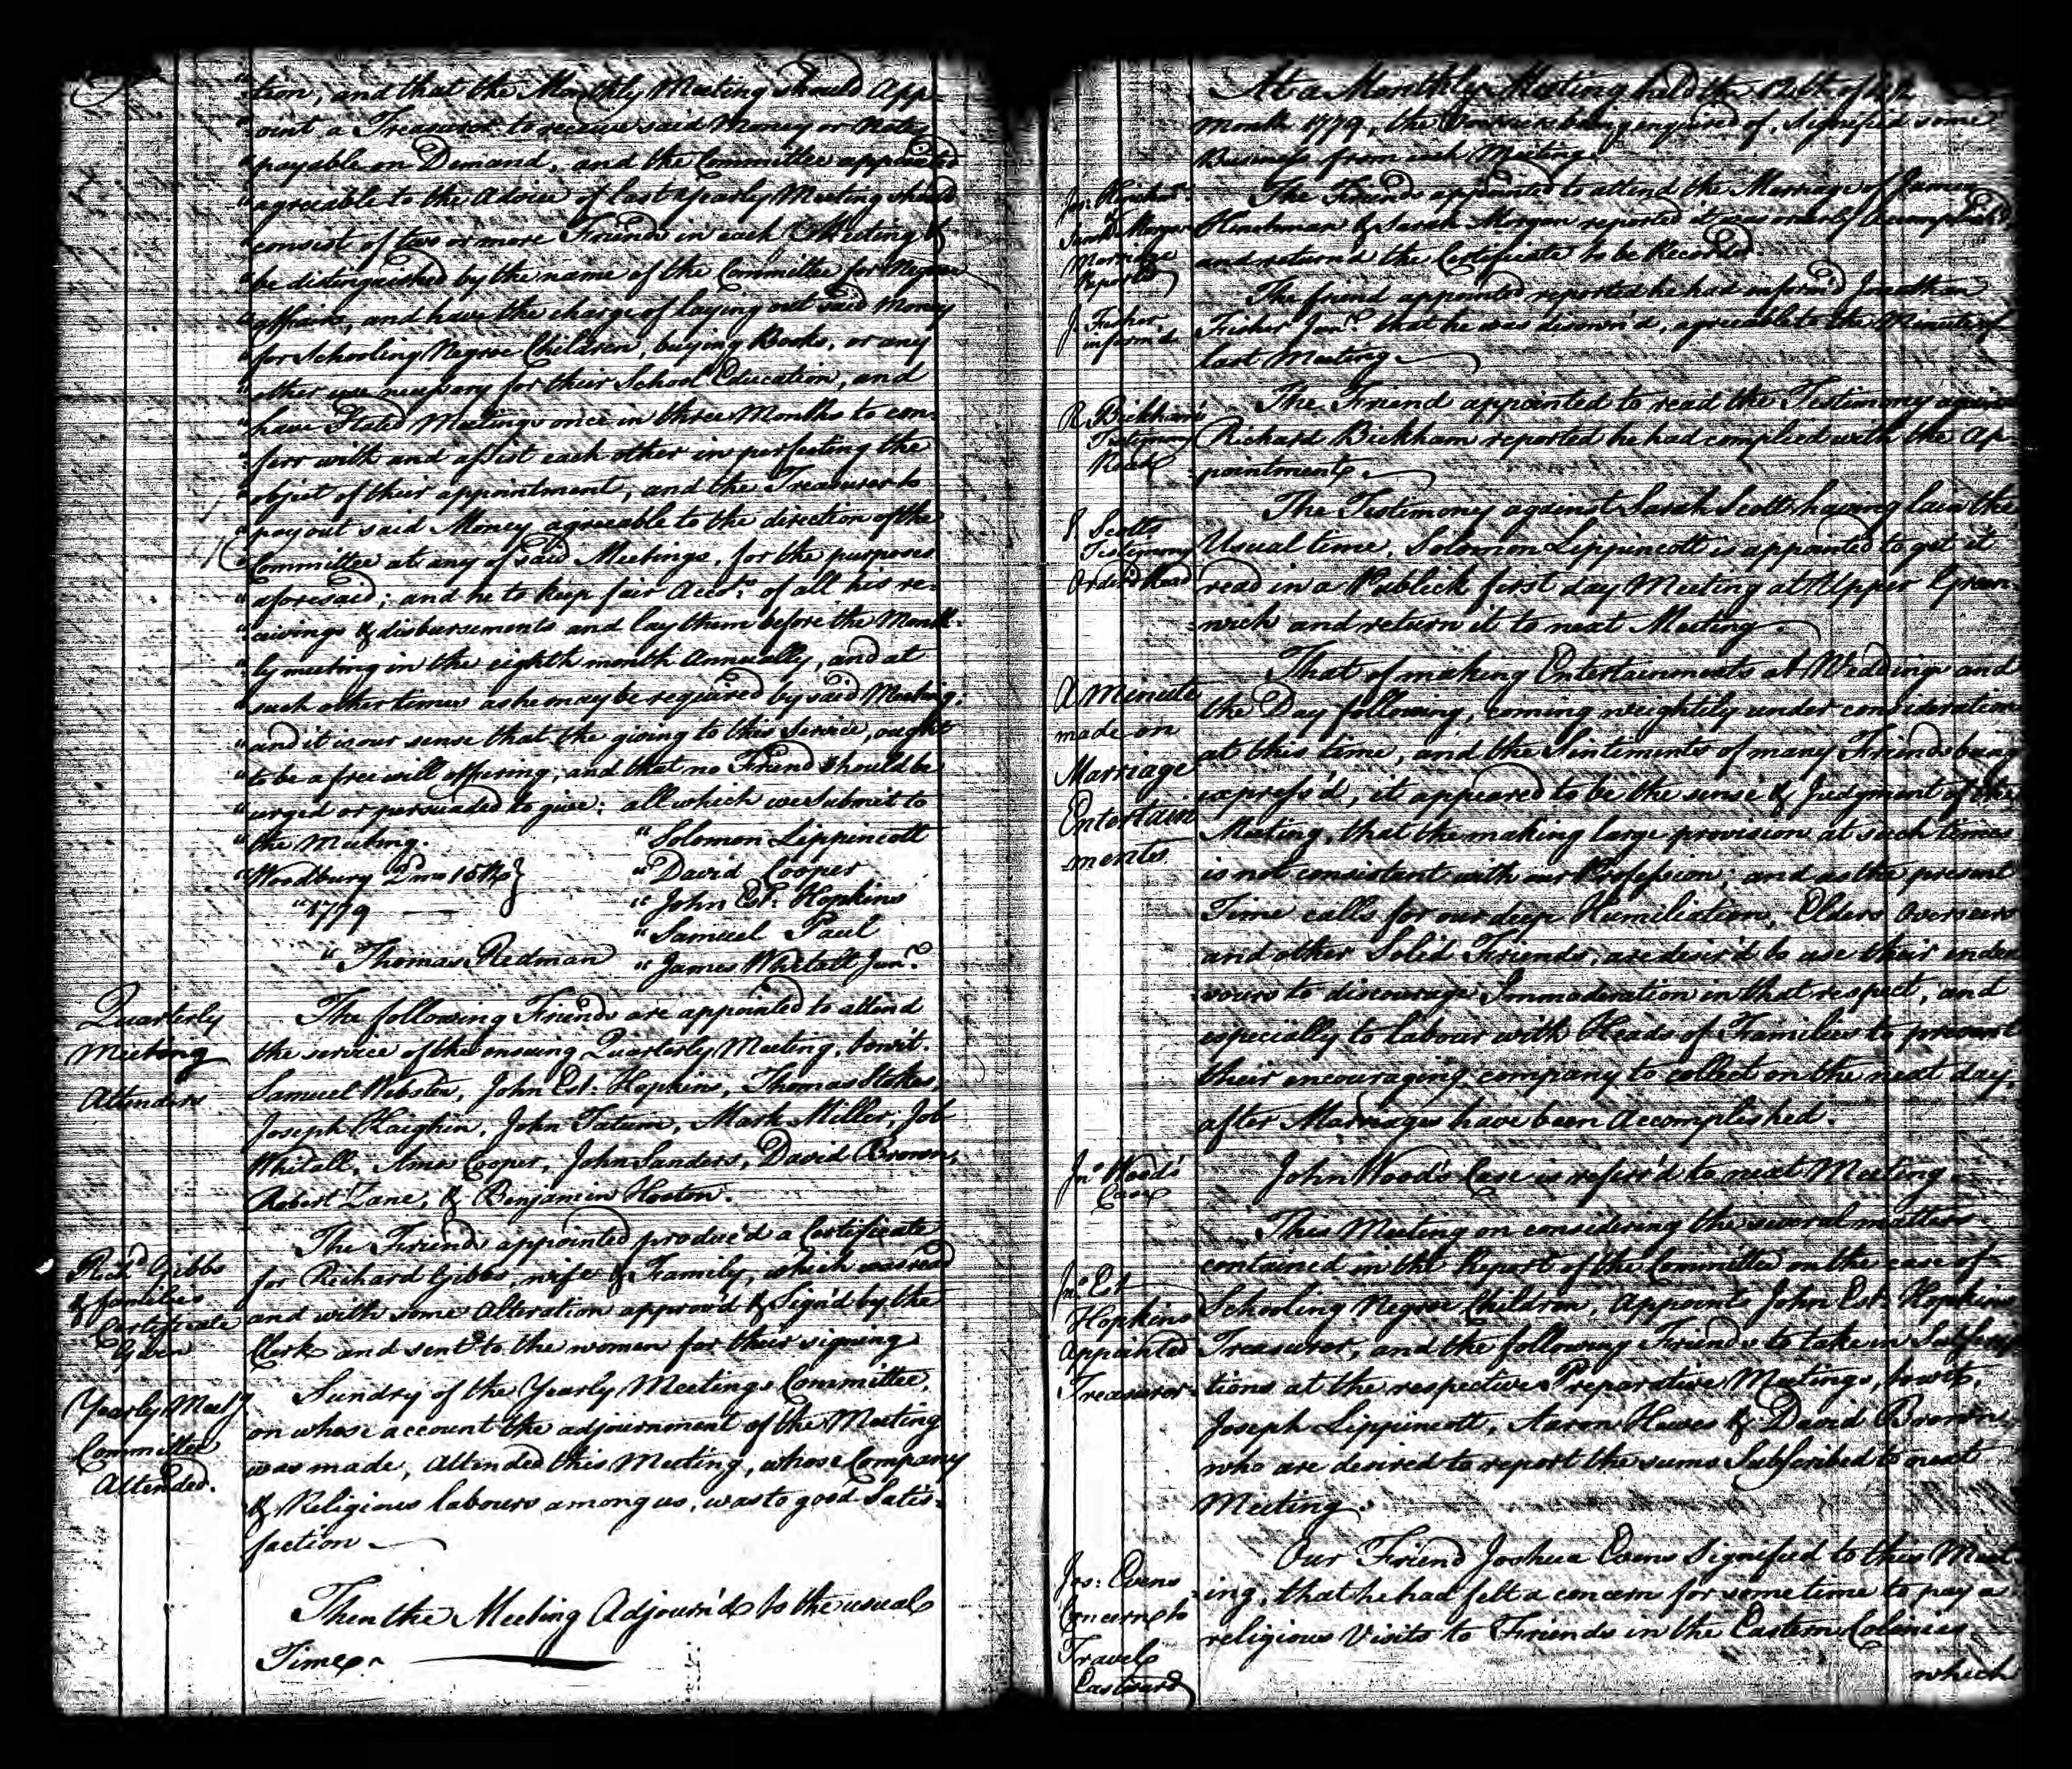 "tion, and that the Monthly Meeting should App-
"oint a Treasurer to receive said Money or Notes
"payable on Demand, and the Committee appointed
"agreeable to the Advice of last Yearly Meeting should
"consist of two or more Friends in each Meeting &
"be distinguished by the name of the Committee for Negroe
"affairs, and have the charge of laying out said Money
"for Schooling Negroe Children, buying Books, or any
"other use necessary for their School Education, and
"have Stated Meetings once in three Months to con-
"ferr with and assist each other in perfecting the
"object of their appointment, and the Treasurer to
"pay out said Money agreeable to the direction of the
"Committee at any of said Meetings, for the purposes
"aforesaid; and he to keep fair Accots. of all his re-
"ceivings & disbursements and lay them before the Month-
"ly meeting in the eighth month Annually, and at
"such other times as he may be required by said Meeting.
"and it is our sense that the giving to this Service, ought
"to be a free will offering, and that no Friend should be
"urged or persuaded to give: all which we Submit to
"the Meeting. "Solomon Lippincott
"Woodbury 2mo 15th } "David Cooper
"1779 "John Est. Hopkins
"Samuel Paul
"Thomas Redman "James Whitall Junr.
Quarterly
Meeting
Attenders
The following Friends are appointed to attend
the service of the ensuing Quarterly Meeting, towit.
Samuel Webster, John Est. Hopkins, Thomas Stokes,
Joseph Kaighin, John Tatum, Mark Miller, Job
Whitall, Amos Cooper, John Sanders, David Brown,
Robert Zane, & Benjamin Hooton.
Richd Gibbs
& families
Certificate
Given
The Friends appointed produc'd a Certificate
for Richard Gibbs, wife & Family, which was read
and with some Alteration approv'd & Sign'd by the
Clerk and sent to the women for their signing
Yearly Meetg
Committee
Attended.
Sundry of the Yearly Meetings Committee,
on whose account the adjournment of the Meeting
was made, Attended this Meeting, whose Company
& Religious labours among us, was to good Satis-
faction
Then the Meeting Adjourn'd to the usual
Time.
At a Monthly Meeting held the 12th of
Month 1779, the being enquired of, Signified some
Business from each Meeting.
Marriage
Reported
The Friends appointed to attend the Marriage of James
Hinchman & Sarah Morgan reported it was orderly Accomplish'd
and return'd the Certificate to be Recorded.
J. Fisher
inform'd
The friend appointed reported he had inform'd Jonathan
Fisher Junr. that he was disown'd, agreeable to the Minute of
last Meeting.
R. Bickham's
Testimony
Read
The Friend appointed to read the Testimony against
Richard Bickham reported he had complied with the Ap-
-pointment.
S. Scotts
Testimony
Order'd Read
The Testimony against Sarah Scott having lain the
Usual time, Solomon Lippincott is appointed to get it
read in a Publick first day Meeting at Upper Green-
-wich and return it to next Meeting.
A Minute
made on
Marriage
Entertain
-ments
That of making Entertainments at Weddings and
the Day following, coming weightily under consideration
at this time, and the Sentiments of many Friends being
express'd, it appeared to be the sense & Judgment of the
Meeting, that the making large provision at such times
is not consistent with our Profession, and as the present
Time calls for our deep Humiliation, Elders Overseers
and other Solid Friends, are desir'd to use their endea
-vours to discourage Immoderation in that respect, and
especially to labour with Heads of Families to prevent
their encouraging company to collect on the next day,
after Marriages have been Accomplished.
Jno Wood's
Case
John Wood's Case is referr'd to next Meeting
Jno Est
Hopkins
Appointed
Treasurer
This Meeting on considering the several matters
contained in the Report of the Committee on the case of
Schooling Negroe Children, Appoint John Est. Hopkins
Treasurer, and the following Friends to take in Subscrip
-tions at the respective Preparative Meetings, towit,
Joseph Lippincott, Aaron Hewes & David Brown,
who are desired to report the sums Subscribed to next
Meeting.
Jos: Evens
Concern to
Travel
Eastward
Our Friend Joshua Evens Signified to this Meet-
-ing, that he had felt a concern for some time to pay a
religious Visits to Friends in the Eastern Colonies
which